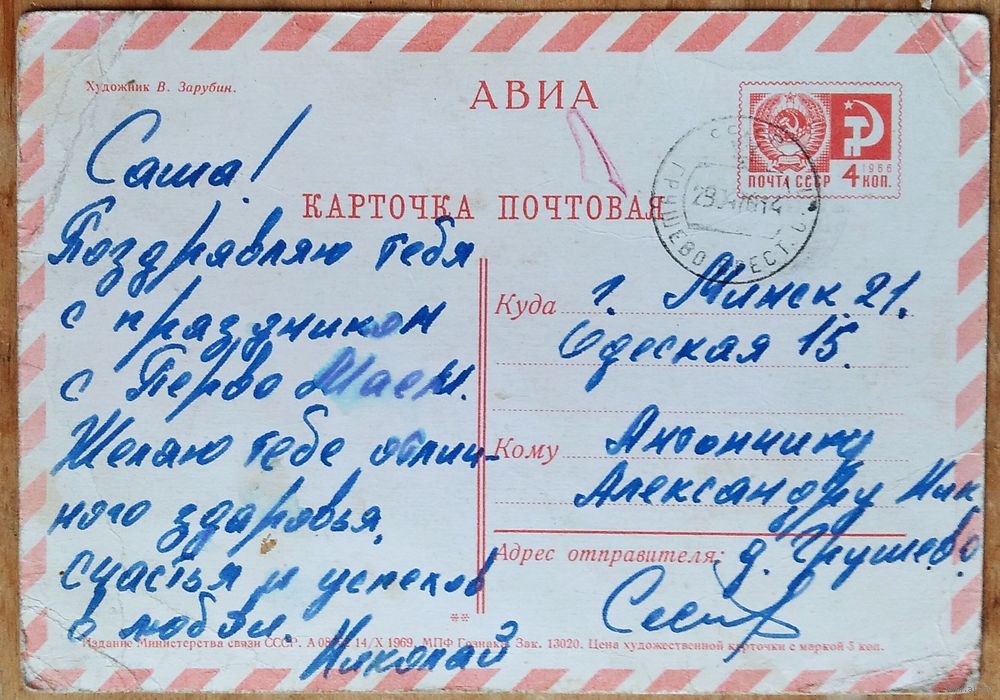 Художник В. Зарубин.
АВИА
ПОЧТА СССР 4 КОП.
1966
КАРТОЧКА ПОЧТОВАЯ
Саша!
Поздравляю тебя
с праздником
с Перво Маем.
Желаю тебе отлич-
ного здаровья,
счастья и успехов
в любви.
Николай
Куда г. Минск 21.
Одеская 15.
Кому
Александру Ник
Адрес отправителя: д. Грушево.
Издание Министерства связи СССР. 14/X 1969. МПФ Гознака. Зак. 13020. Цена художественной карточки с маркой 5 коп.